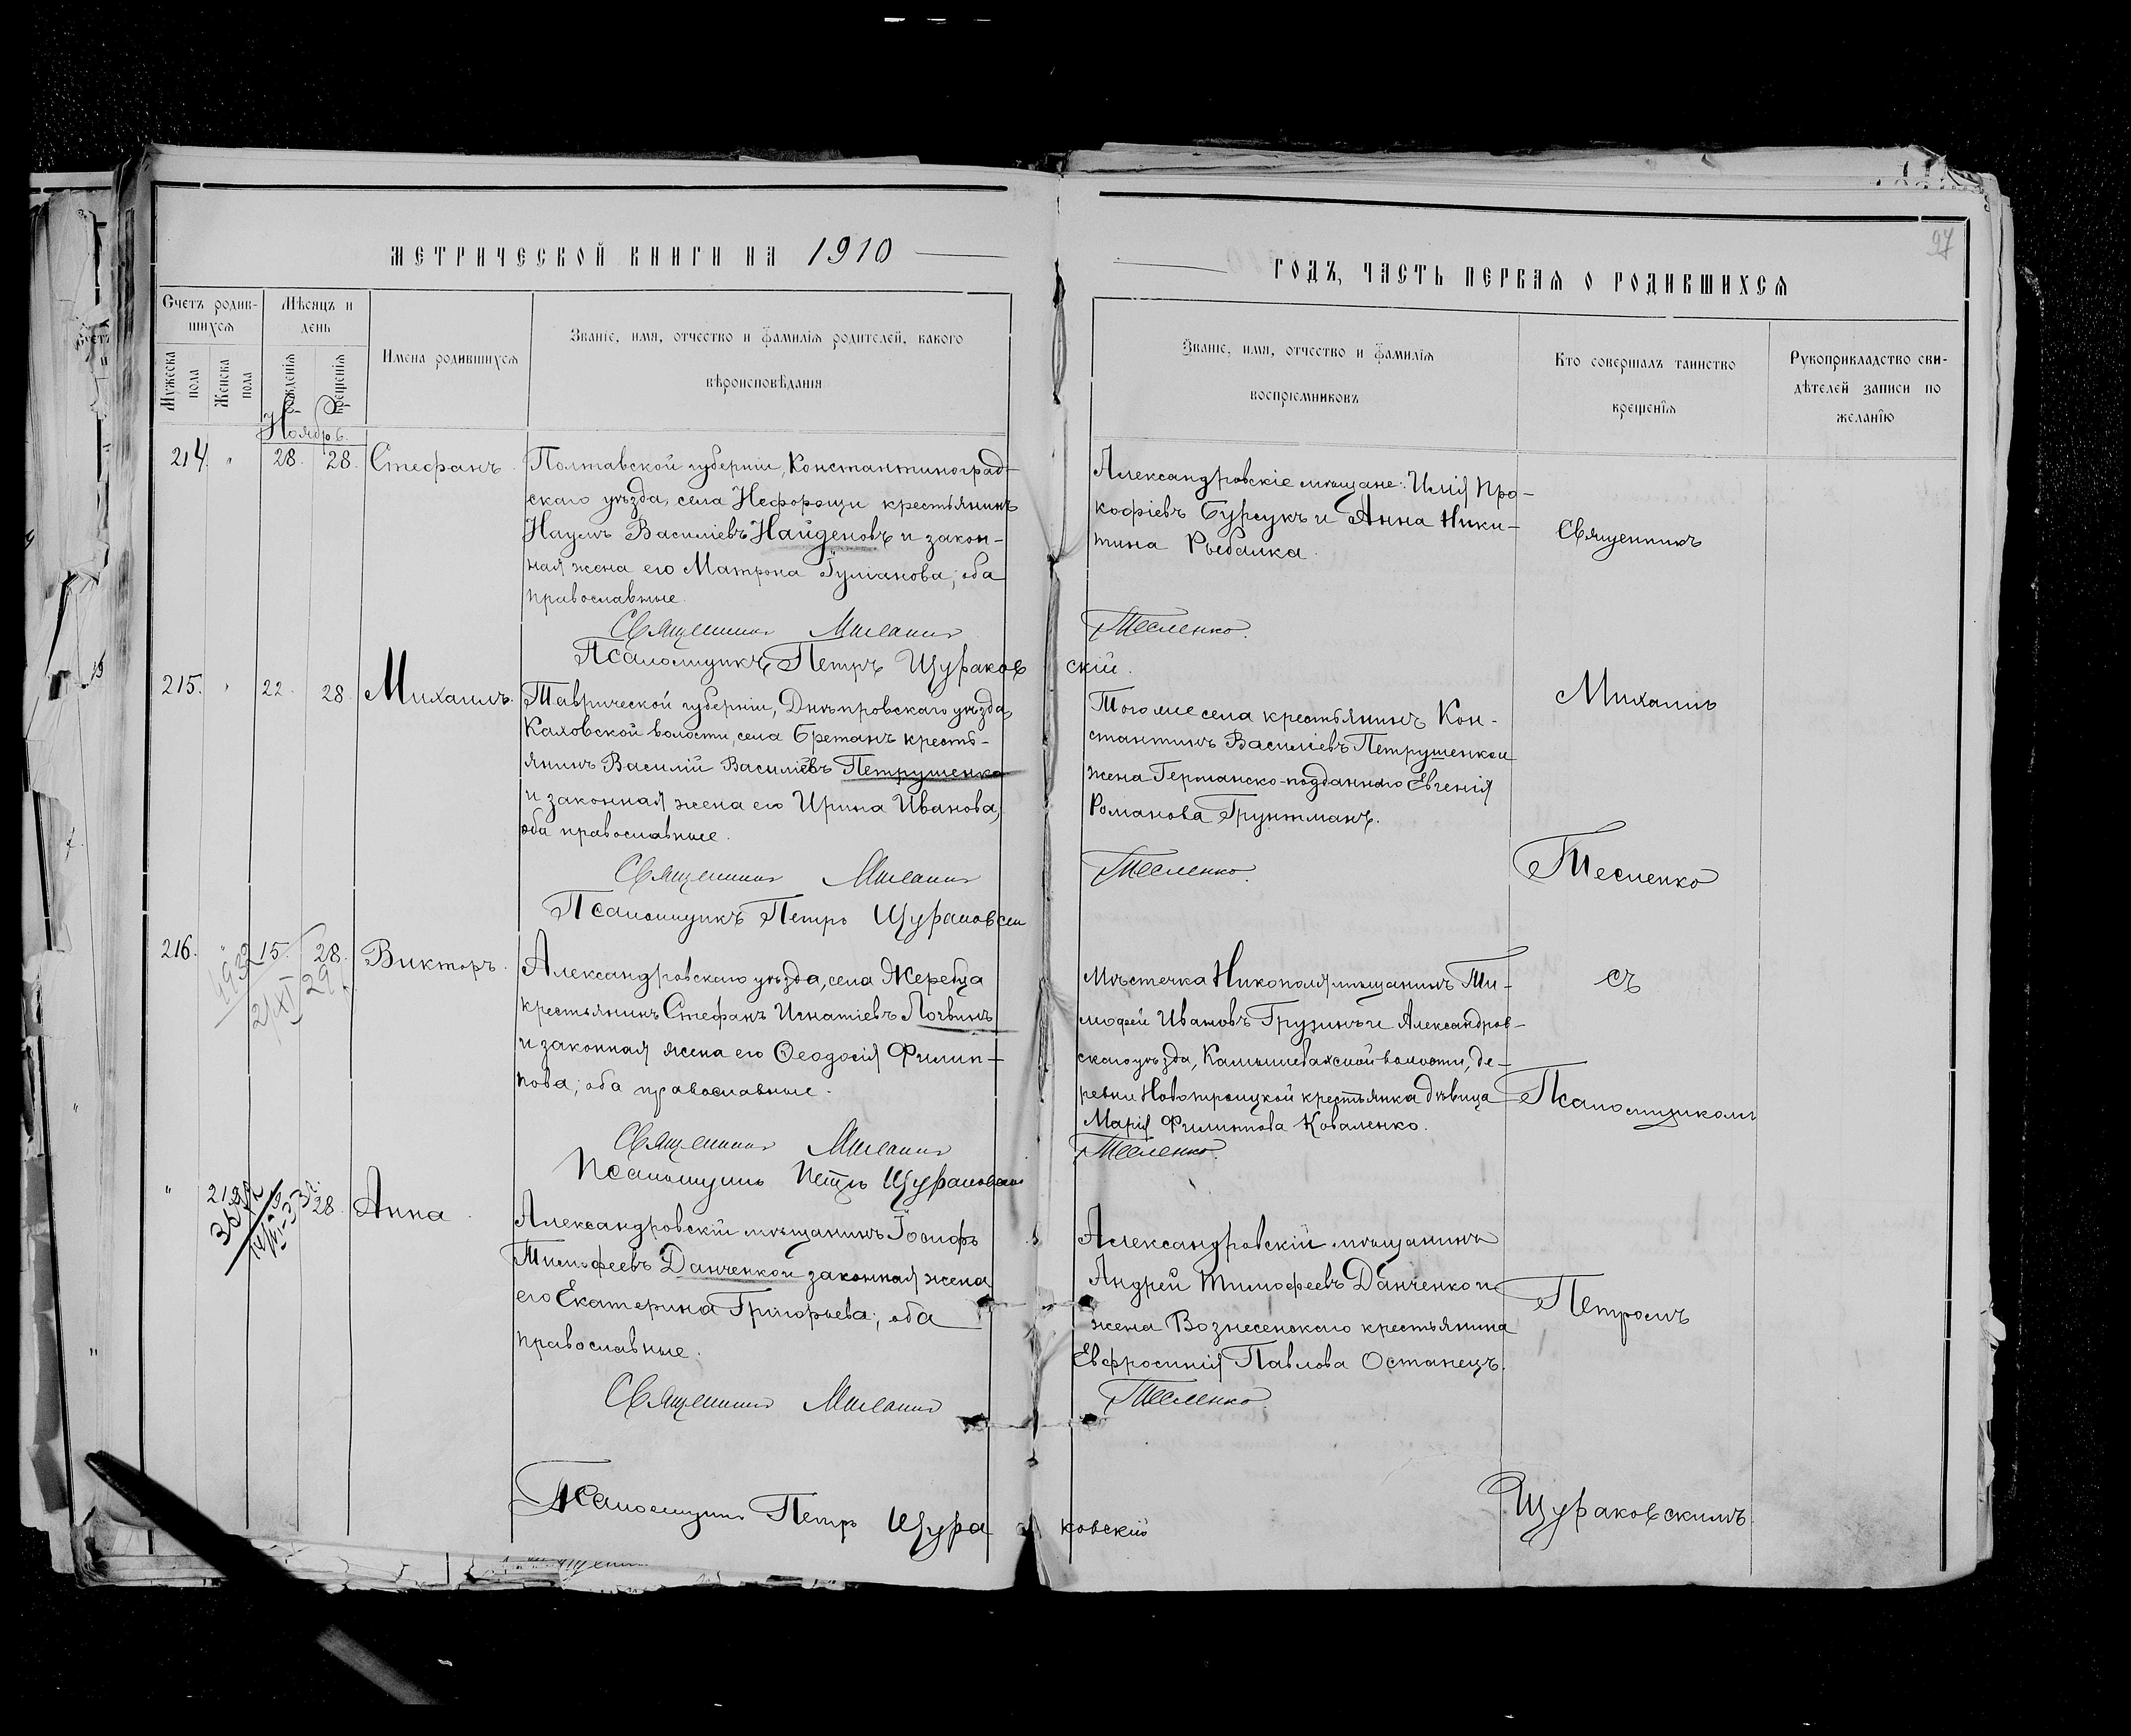 МЕТРИЧЕСКОЙ КНИГИ НА 1910
Счетъ родив-
шихся
Мѣсяцъ и
день
Мужеска
пола
Женска
пола
рожденія
крещенія
Имена родившихся
Званіе, имя, отчество и фамилія родителей, какого
вѣроисповѣданія
Ноябрь.
214. " 28. 28. Стефанъ.
Полтавской губерніи, Константиноград-
скаго уѣзда, села Нефорощи крестьянинъ
Наумъ Василіевъ Найденовъ и закон-
ная жена его Матрона Гуліанова; оба
православные.
Священникъ Михаилъ
Псаломщикъ Петръ Щураков
215. " 22. 28. Михаилъ.
Таврической губерніи, Днѣпровскаго уѣзда,
Каховской волости, села Бретанъ кресть-
янинъ Василій Василіевъ Петрушенко
и законная жена его Ирина Иванова;
оба православные.
Священникъ Михаилъ
Псаломщикъ Петръ Щураковскій
216. " 15. 28. Викторъ.
21/XI 29
Александровскаго уѣзда, села Жеребца
крестьянинъ Стефанъ Игнатіевъ Логвинъ
и законная жена его Ѳеодосія Филип-
пова; оба православные.
Священникъ Михаилъ
Псаломщикъ Петръ Щураковскій
" 28. Анна.
Александровскій мѣщанинъ Іосифъ
Тимофеевъ Данченко и законная жена
его Екатерина Григорьева; оба
православные.
Священникъ Михаилъ
Псаломщикъ Петръ Щура
97
ГОДЪ, ЧАСТЬ ПЕРВАЯ О РОДИВШИХСЯ
Званіе, имя, отчество и фамилія
воспріемниковъ
Кто совершалъ таинство
крещенія
Рукоприкладство сви-
дѣтелей записи по
желанію
Александровскіе мѣщане: Илія Про-
кофіевъ Бурсукъ и Анна Ники-
тина Рыбалка.
Тесленко.
скій.
Того же села крестьянинъ Кон-
стантинъ Василіевъ Петрушенко и
жена Германско-подданнаго Евгенія
Романова Грунтманъ.
Тесленко.
Мѣстечка Никополя мѣщанинъ Ти-
мофей Ивановъ Грузинъ и Александров-
скаго уѣзда, Камышевахской волости, де-
ревни Новотроицкой крестьянка дѣвица
Марія Филиппова Коваленко.
Тесленко.
Александровскій мѣщанинъ
Андрей Тимофеевъ Данченко и
жена Вознесенскаго крестьянина
Евфросинія Павлова Останецъ.
Тесленко.
ковскій
Священникъ
Михаилъ
Тесленко
съ
Псаломщикомъ
Петромъ
Щураковскимъ.